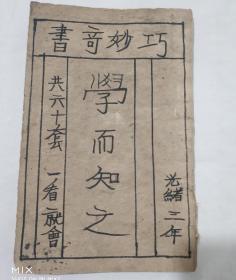 巧妙奇書
光緒二年
學而知之
共六十套 一看就會
MIX